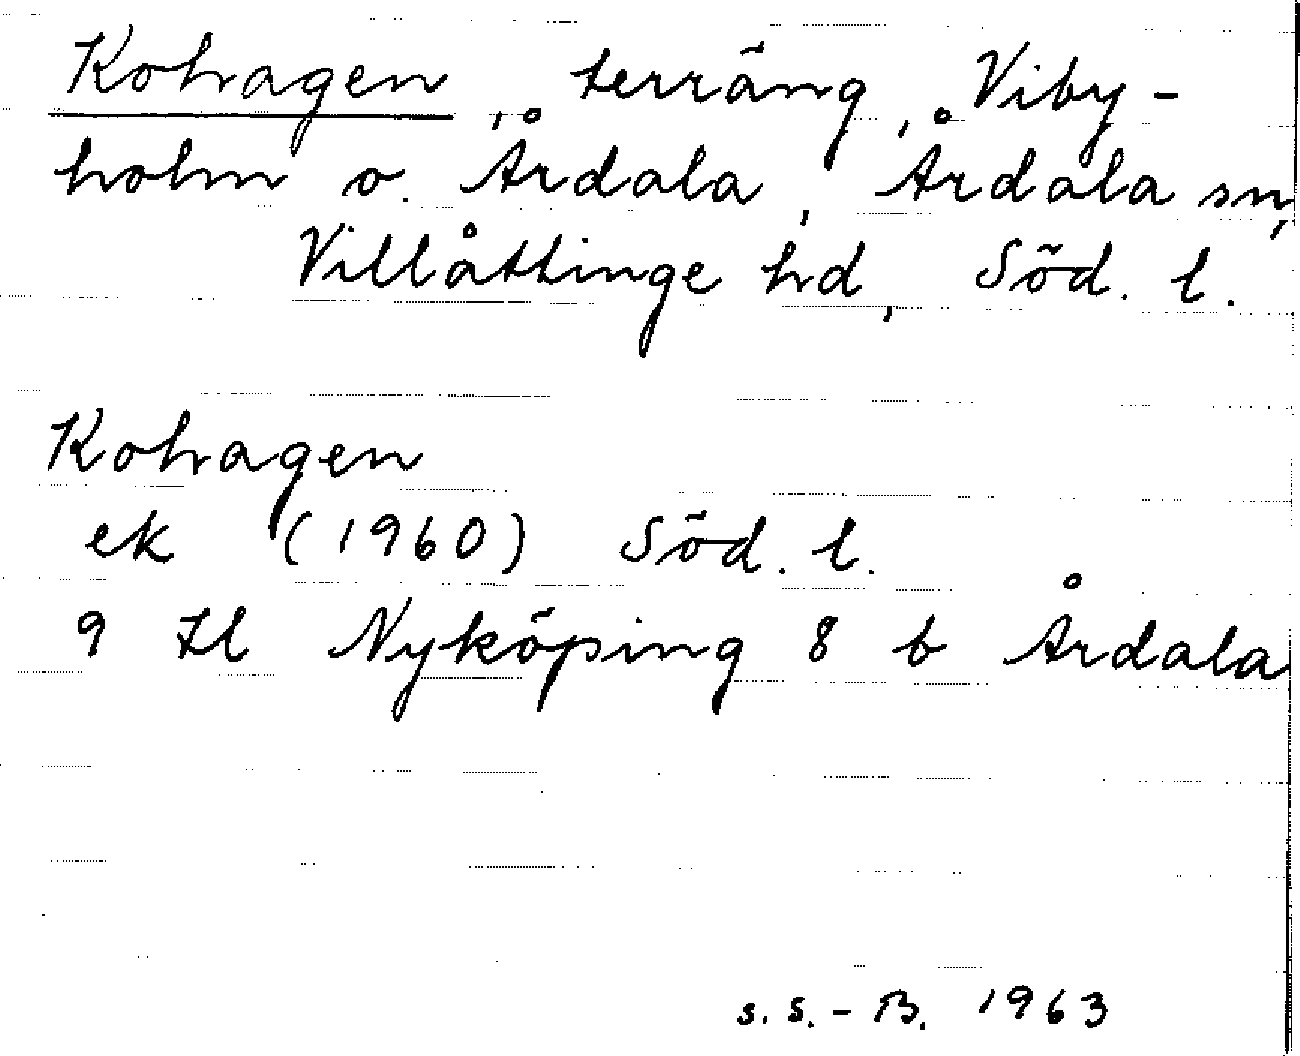 Kohagen, terräng, Viby-
holm o. Årdala, Årdala sn,
Villåttinge hd, Söd. l.
Kohagen
ek (1960) Söd. l.
9 H Nyköping 8 b Årdala
s.s.-B. 1963